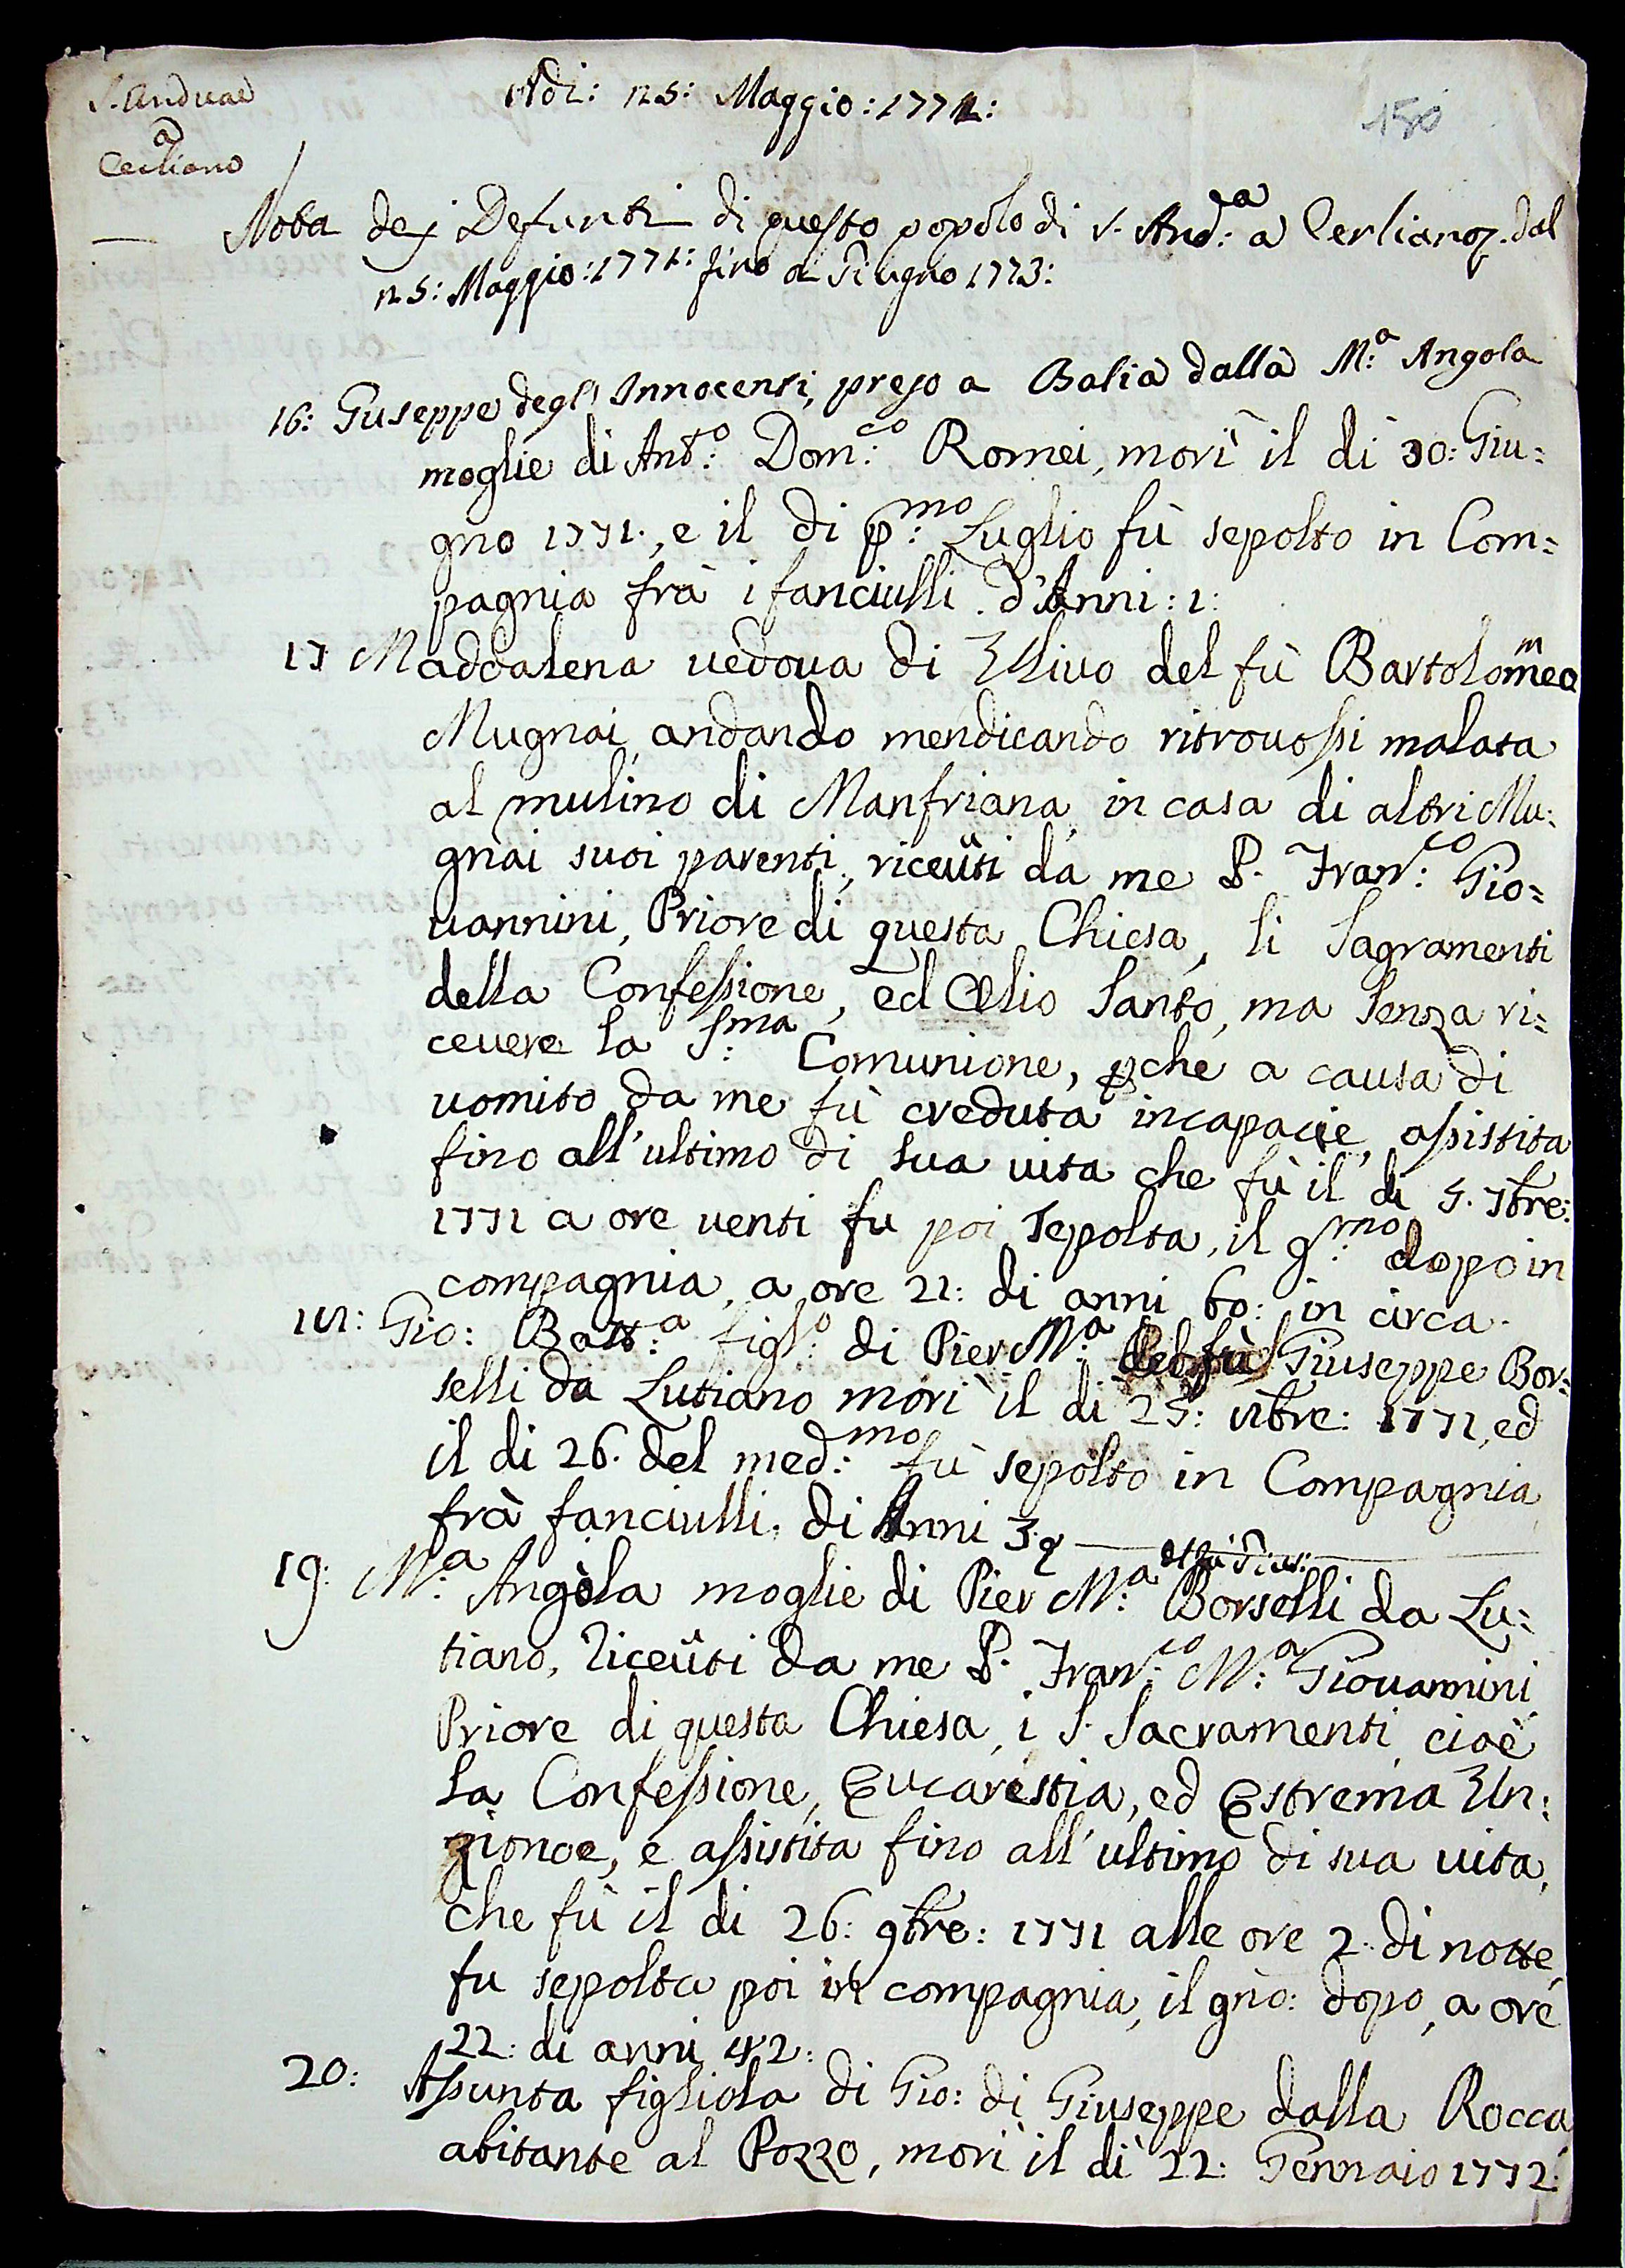 S. Andrea
a
Cerliano
Adi: 25: Maggio: 1771:
150
Nota dej Defunti di questo popolo di S. And:ª a Cerliano. dal
25: Maggio: 1771: fino a Giugno 1773:
16: Guseppe degl'Innocenti, preso a Balia dalla M:ª Angola
moglie di Ant:º Dom:co Romei, morì il di 30: Giu=
gno 1771., e il di p:mo Luglio fù sepolto in Com=
pagnia frà i fanciulli. d'Anni: 1:
17 Maddalena vedova di Ulivo del fù Bartolommeo
Mugnai, andando mendicando ritrovossi malata
al mulino di Manfriana, in casa di altri Mu:
gnai suoi parenti, riceuti da me P. Fran:co Gio=
vannini, Priore di questa Chiesa, li Sagramenti
della Confessione, ed Olio Santo, ma senza ri=
cevere la S:ma Comunione, pche a causa di
vomito da me fù creduta incapacie, assistita
fino all'ultimo di sua vita che fù il di 5. 7bre:
1771 a ore venti fu poi sepolta, il g:rno dopo in
compagnia, a ore 21: di anni 60: in circa.
18: Gio: Batt:ª figl:º di Pier M:ª del fù Giuseppe Bor=
selli da Lutiano morì il di 25: 8bre: 1771, ed
il di 26. del med:mo fù sepolto in Compagnia
frà fanciulli. di Anni 3
19: M:ª Angola moglie di Pier M:ª del fù Gius: Borselli da Lu=
tiano, riceuti da me P. Fran:co M:ª Giovannini
Priore di questa Chiesa, i S. Sacramenti, cioè
la Confessione, Eucarestia, ed Estrema Un:
zionoe, e assistita fino all'ultimo di sua vita,
che fù il di 26: 9bre: 1771 alle ore 2: di notte,
fu sepolta poi in compagnia, il gno: dopo, a ore
22: di anni 42:
20: Assunta figliola di Gio: di Giuseppe dalla Rocca
abitante al Pozzo, morì il dì 22: Gennaio 1772: